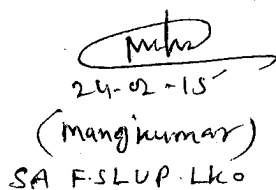 24-02-15
(Manojkumar)
SA F.SLUP.LKO